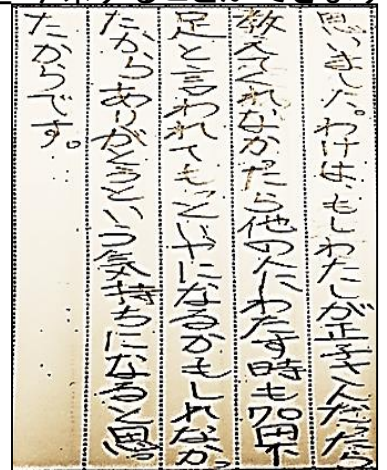 思いました。わけは、もしわたしが正子さんだったら
教えてくれなかったら他の人にわたす時も70円不
足と言われてもっといやになるかもしれなかっ
たからありがとうという気持ちになると思っ
たからです。